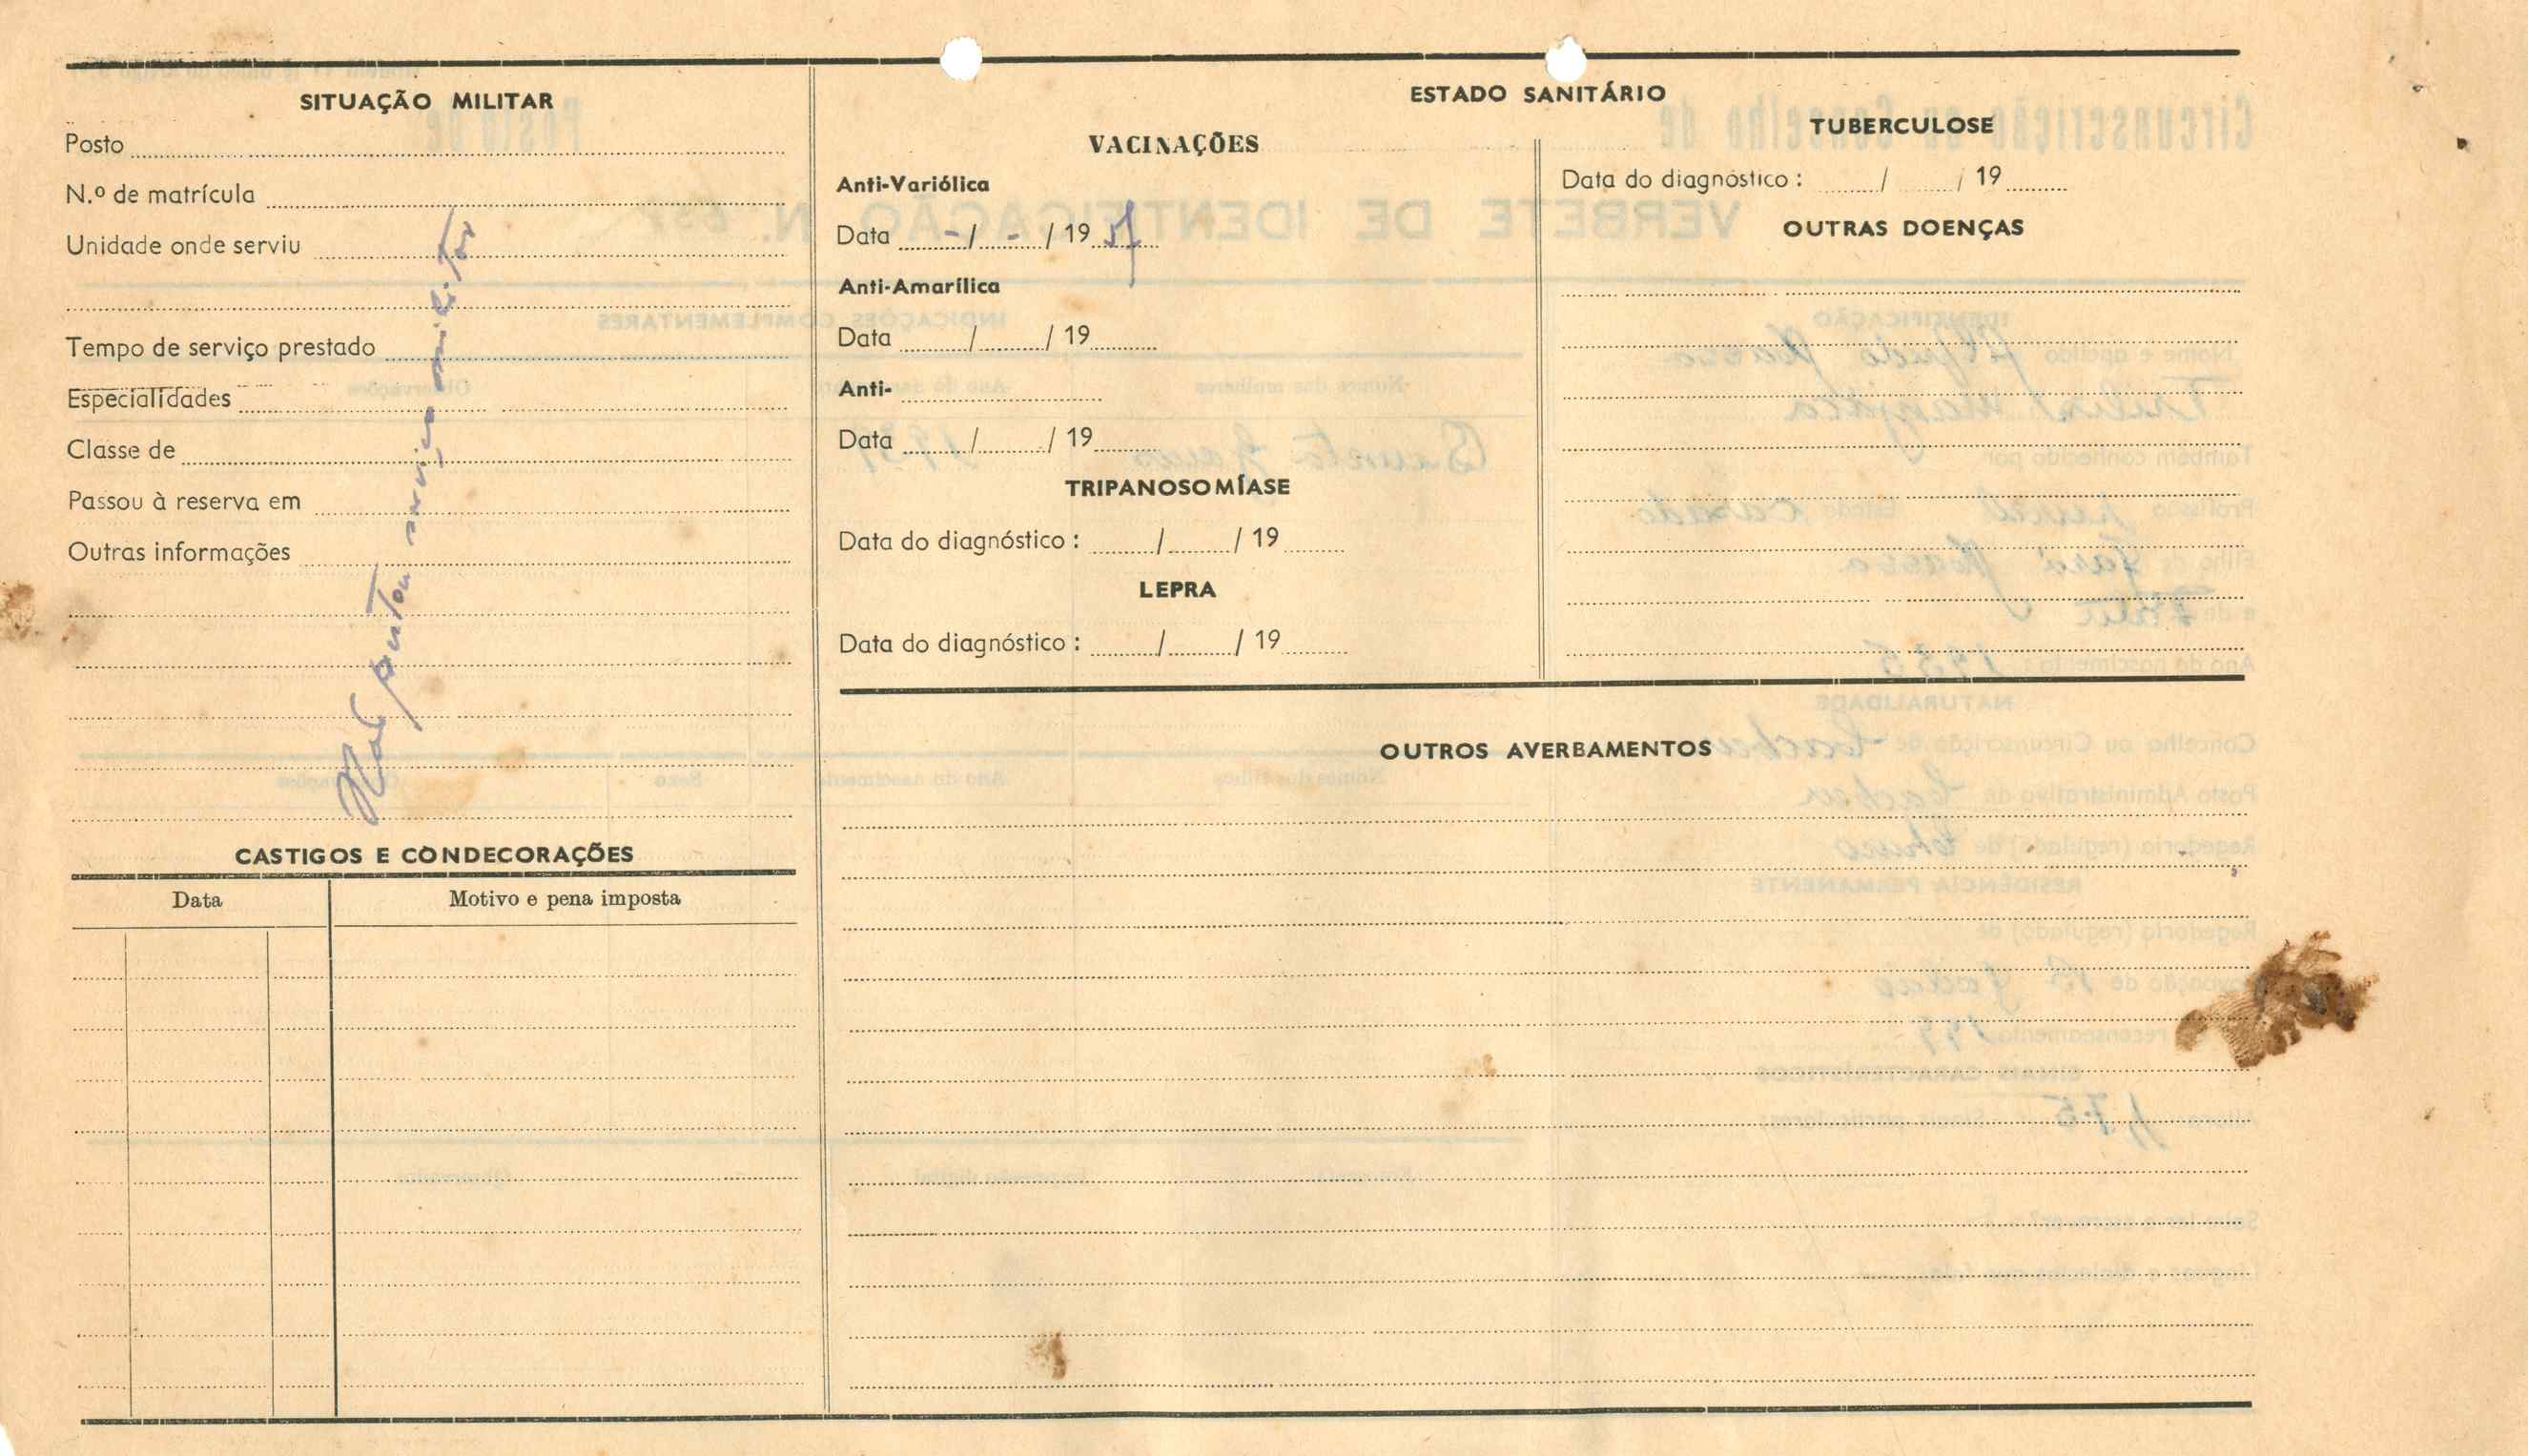 SITUAÇÃO MILITAR
Posto
N.º de matrícula
Unidade onde serviu
Tempo de serviço prestado
Especialidades
Classe de
Passou à reserva em
Outras informações
Não prestou serviço militar
CASTIGOS E CONDECORAÇÕES
Data Motivo e pena imposta
ESTADO SANITÁRIO
VACINAÇÕES
Anti-Variólica
Data - / - / 19
Anti-Amarílica
Data / / 19
Anti-
Data / / 19
TRIPANOSOMÍASE
Data do diagnóstico : / / 19
LEPRA
Data do diagnóstico : / / 19
TUBERCULOSE
Data do diagnóstico : / / 19
OUTRAS DOENÇAS
OUTROS AVERBAMENTOS